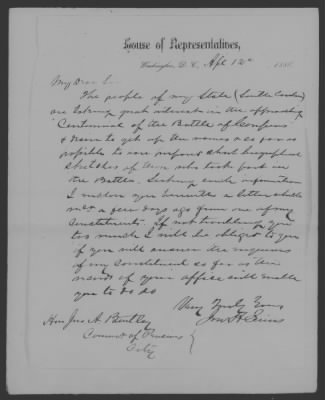 House of Representatives,
Washington, D. C., Apl 12th 1880.
My Dear Sir
The people of my State (South Carolina)
are taking great interest in the approaching
Centennial of the Battle of Cowpens
& desire to get up the names & as far as
possible to can prepare short biographical
sketches of those who took part in
the Battle. Seeking such information
I enclose you herewith a letter addressed
me a few days ago from one of my
Constituents. If not troubling you
too much I will be obliged to you
if you will answer the enquiries
of my constituent as far as the
records of your office will enable
you to do so
Very Truly Yours
Jno. H. Evins
Hon Jno A. Bentley
Commr of Pensions
City